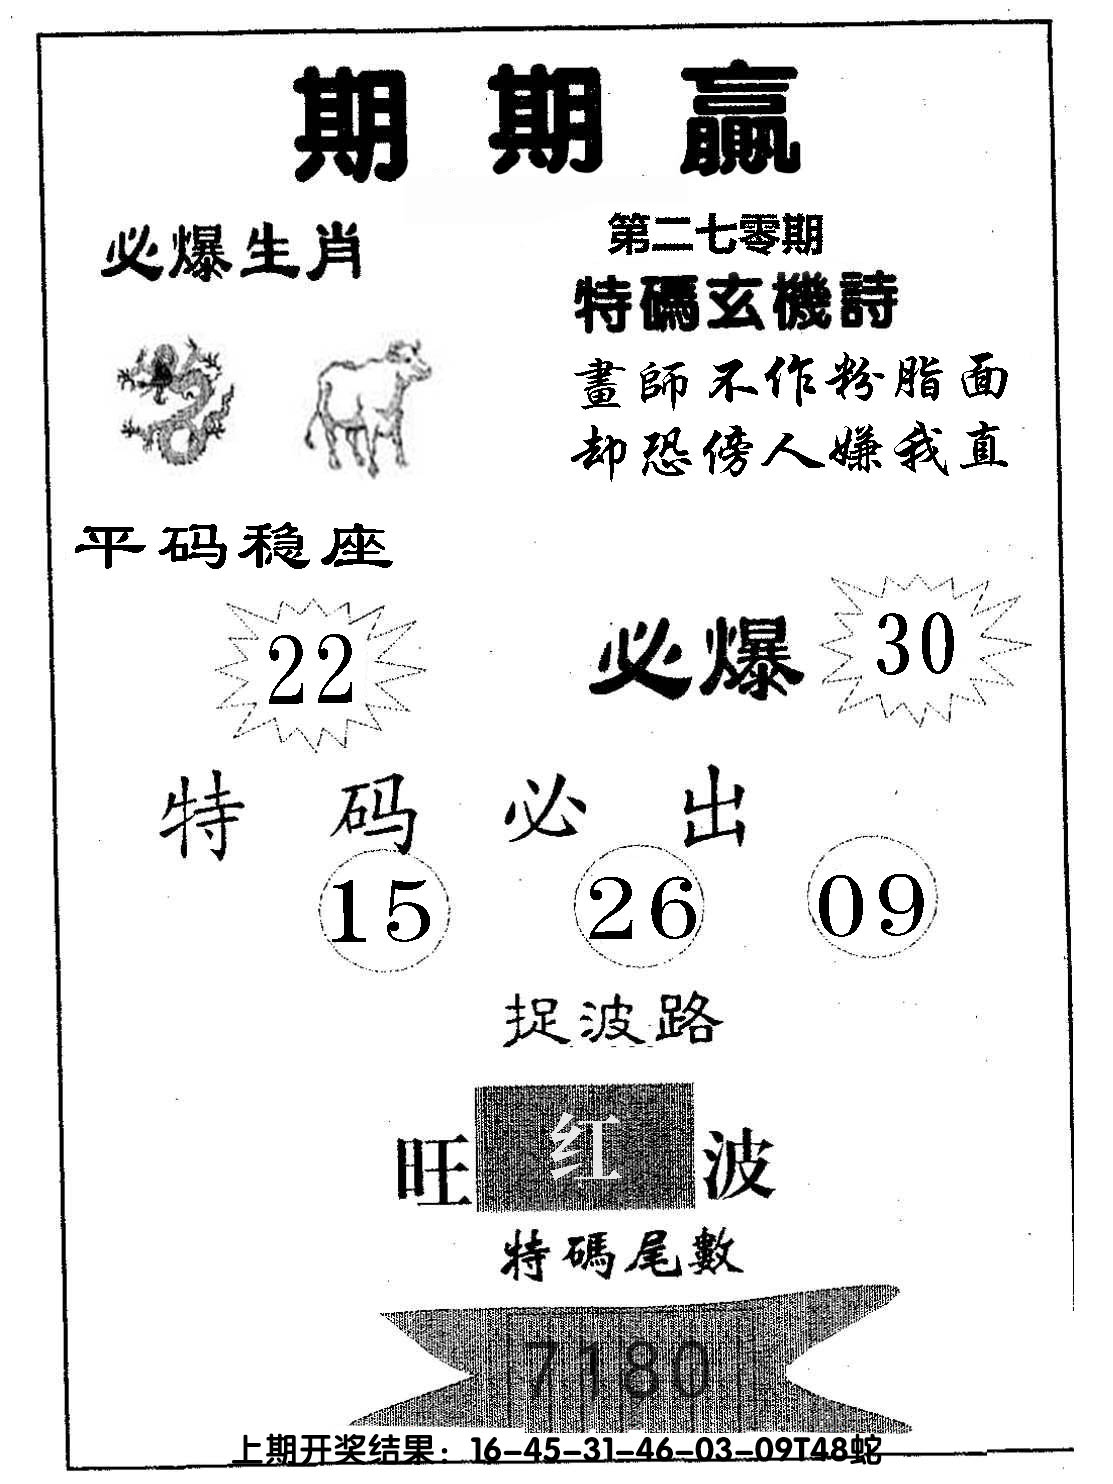 期期赢
必爆生肖
第二七零期
特碼玄機詩
畫師不作粉脂面
却恐傍人嫌我直
平码稳座
22
必爆
30
特码必出
15 26 09
捉波路
旺红波
特碼尾數
7180
上期开奖结果：16-45-31-46-03-09T48蛇